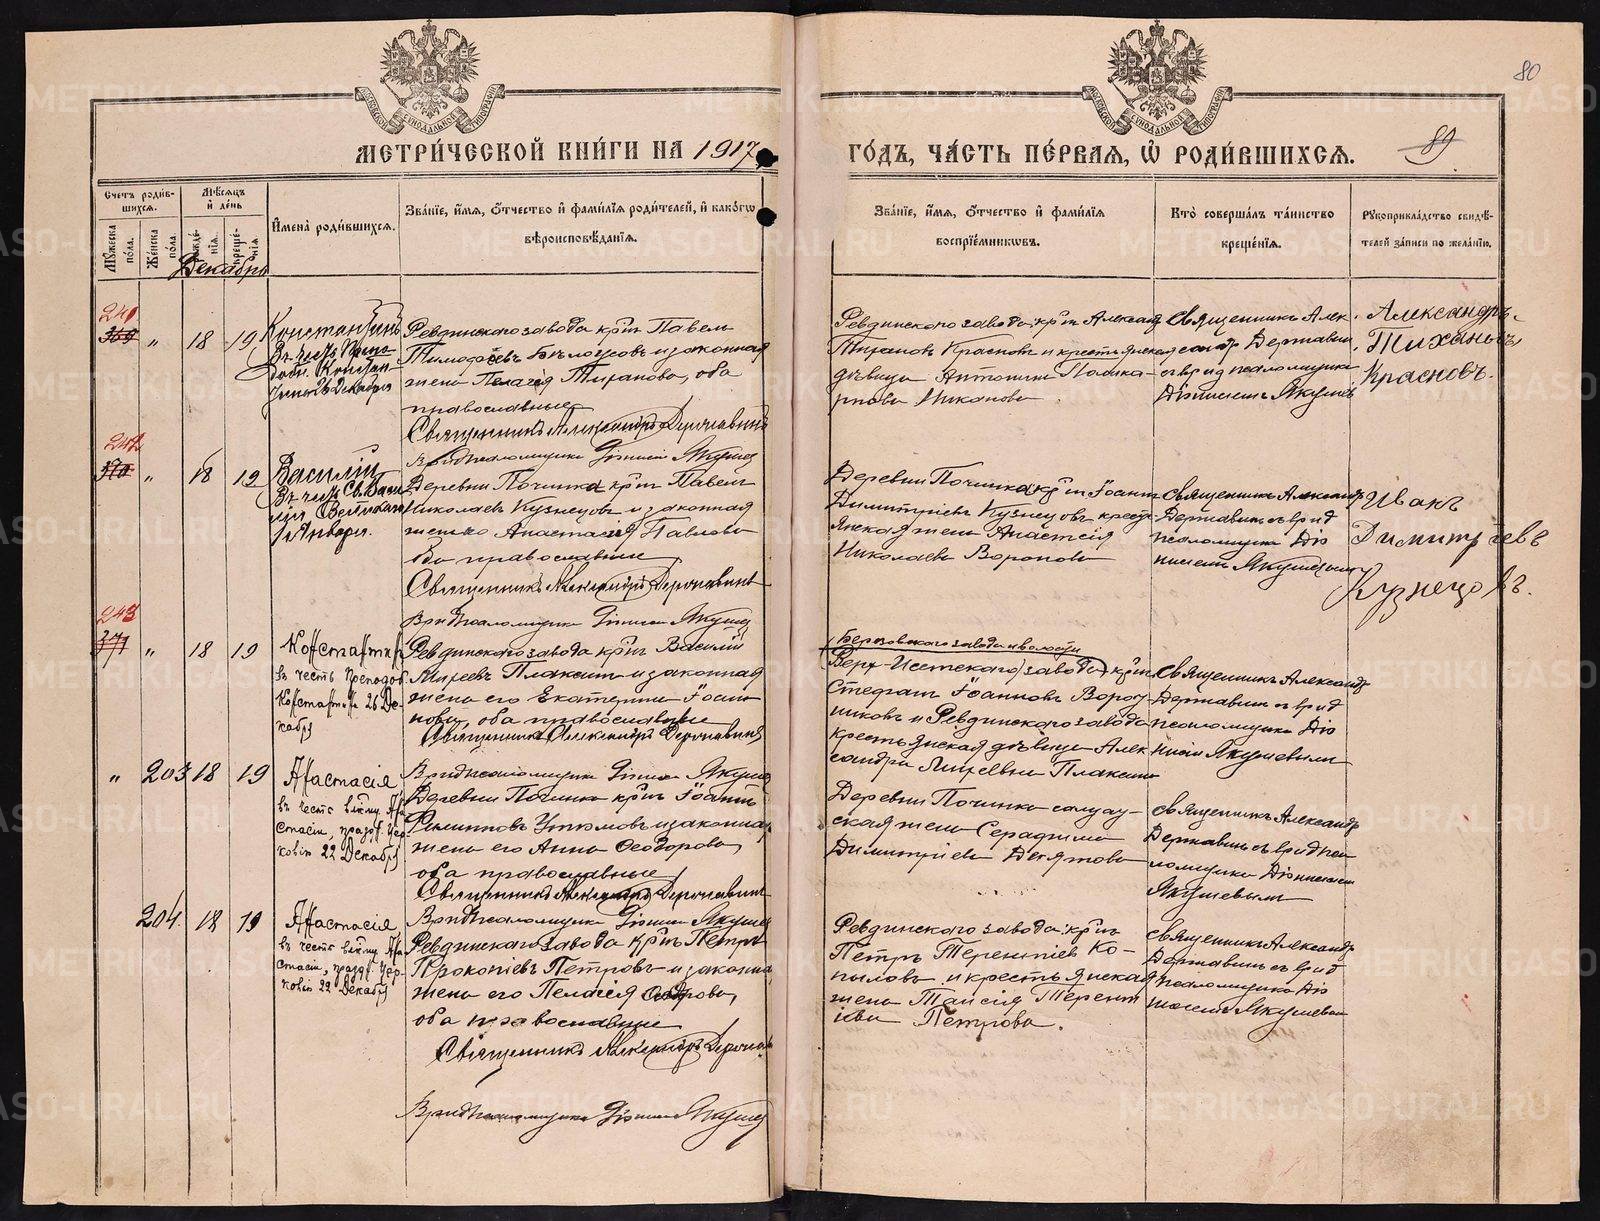 80
МЕТРИ́ЧЕСКОЙ КНИ́ГИ НА 1917
ГО́ДЪ, ЧА́СТЬ ПЕ́РВАЯ, Ѽ РОДИ́ВШИХСЯ.
89
Счетъ роди́в-
шихся.
Мѣ́сяцъ
и́ де́нь
Мꙋ́жеска
по́ла.
Же́нска
по́ла.
рожде́-
нїя.
креще́-
нїя
И҆мена̀ роди́вшихся.
Зва́нїе, и҆́мя, ѻ҆́тчество и҆ фами́лїя роди́телей, и҆ како́гѡ
вѣроисповѣ́данїя.
Зва́нїе, и҆́мя, ѻ҆́тчество и҆ фами́лїя
воспрїе́мникѡвъ.
Кто̀ соверша́лъ та́инство
креще́нїя.
Рꙋкоприкла́дство свидѣ́-
телей за́писи по жела́нїю.
Декабрь
241
369
" 18 19
Константинъ
Въ честь Препо-
добн. Констан-
тина 26 Декабря
Ревдинскаго завода кр‑нъ Павелъ
Тимофеевъ и законная
жена Пелагея Тиранова, оба
православные
Священникъ Александръ Державинъ
Врид псаломщика Діонисій Якушев
Ревдинскаго завода кр‑нъ Александръ
Краснов и крестьянская
дѣвица Антонина Полика-
рпова Никонова
Священникъ Алек-
сандр Державин
съ врид псаломщика
Діонисіемъ Якушев
Александръ
Тихановъ
Красновъ.
242
370
" 18 19
Василій
Въ честь Св. Васи
лія Великаго
1 Января.
Деревни Починка кр‑нъ Павелъ
Николаевъ Кузнецовъ и законная
жена Анастасія Павлова
оба православные
Священникъ Александръ Державинъ
Врид псаломщика Діонисій Якушев
Деревни Починка кр‑нъ Іоаннъ
Димитріевъ Кузнецовъ кресть
янская жена Анастасія
Николаева Воронова
Священникъ Александръ
Державинъ съ врид
псаломщика Діо
нисіемъ Якушевым
Иванъ
Димитріевъ
Кузнецовъ.
243
371
" 18 19
Константинъ
въ честь Преподоб.
Константина 26 Де-
кабря
Ревдинскаго завода кр‑нъ Василій
Мирѣевъ Плаксинъ и законная
жена его Екатерина Іоан-
нова, оба православные
Священникъ Александръ Державинъ
Врид псаломщика Діонисій Якушев
Березовскаго завода и волости
Верх-Исетскаго завода кр‑нъ
Стефанъ Іоанновъ Ворот
никовъ и Ревдинскаго завода
крестьянская дѣвица Алек
сандра Мирѣевна Плаксина
Священникъ Александръ
Державинъ съ врид
псаломщика Діо
нисіем Якушевымъ
" 203 18 19
Анастасія
въ честь вмчцы Ана
стасіи, празд. Цер-
ковію 22 Декабря
Деревни Починка кр‑нъ Іоаннъ
Филипповъ Утюмовъ и законная
жена его Анна Ѳеодорова,
оба православные
Священникъ Александръ Державинъ
Врид псаломщика Діонисій Якушев
Деревни Починка солдат-
ская жена Серафима
Димитріева Десятова
Священникъ Александръ
Державинъ съ врид пса
ломщика Діонисіем
Якушевымъ
204. 18 19
Анастасія,
въ честь вмчцы Ана
стасіи, празд. Цер-
ковію 22 Декабря
Ревдинскаго завода кр‑нъ Петръ
Прокопіевъ Петровъ и законная
жена его Пелагея,
оба православные
Священникъ Александръ Державинъ
Врид псаломщика Діонисій Якушев
Ревдинскаго завода кр‑нъ
Петръ Терентіевъ Ко-
пыловъ и крестьянская
жена Таисія Терент
іева Петрова.
Священникъ Александръ
Державинъ съ врид
псаломщика Діо
нисіемъ Якушевым
METRIKI.GASO-URAL.RU